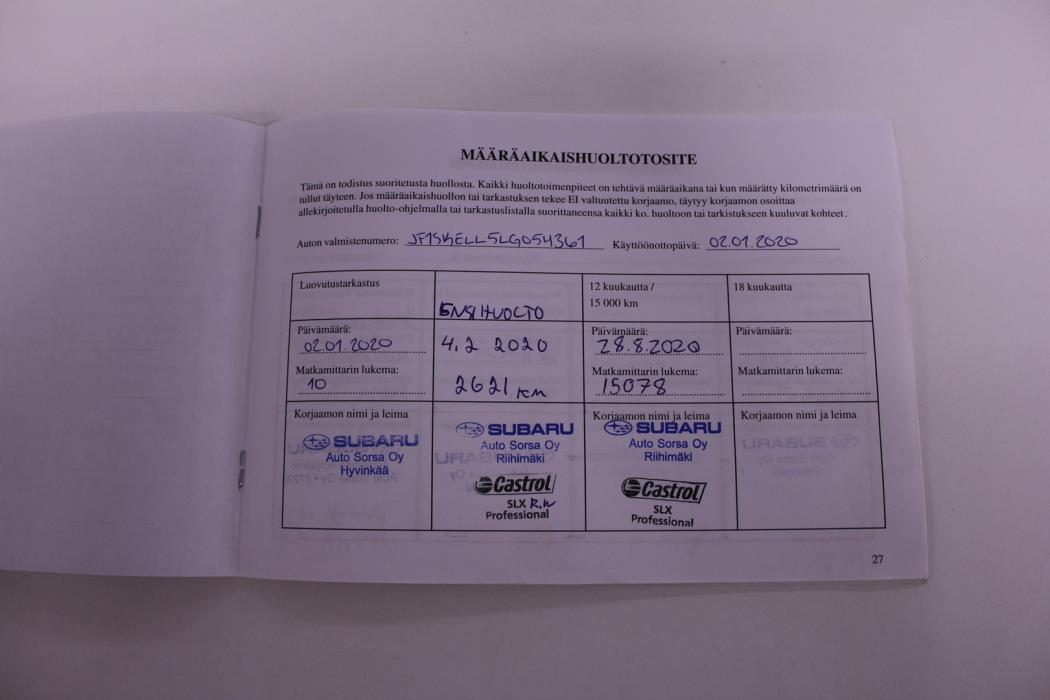 MÄÄRÄAIKAISHUOLTOTOSITE
Tämä on todistus suoritetusta huollosta. Kaikki huoltotoimenpiteet on tehtävä määräaikana tai kun määrätty kilometrimäärä on
tullut täyteen. Jos määräaikaishuollon tai tarkastuksen tekee EI valtuutettu korjaamo, täytyy korjaamon osoittaa
allekirjoitetulla huolto-ohjelmalla tai tarkastuslistalla suorittaneensa kaikki ko. huoltoon tai tarkistukseen kuuluvat kohteet.
Auton valmistenumero: JF1SKELL5LG054361 Käyttöönottopäivä: 02.01.2020
Luovutustarkastus
ENSIHUOLTO
12 kuukautta /
15 000 km
18 kuukautta
Päivämäärä:
02.01.2020
4.2 2020
Päivämäärä:
28.8.2020
Päivämäärä:
Matkamittarin lukema:
10
2621 km
Matkamittarin lukema:
15078
Matkamittarin lukema:
Korjaamon nimi ja leima
SUBARU
Auto Sorsa Oy
Hyvinkää
SUBARU
Auto Sorsa Oy
Riihimäki
Castrol
SLX
Professional
Korjaamon nimi ja leima
SUBARU
Auto Sorsa Oy
Riihimäki
Castrol
SLX
Professional
Korjaamon nimi ja leima
27